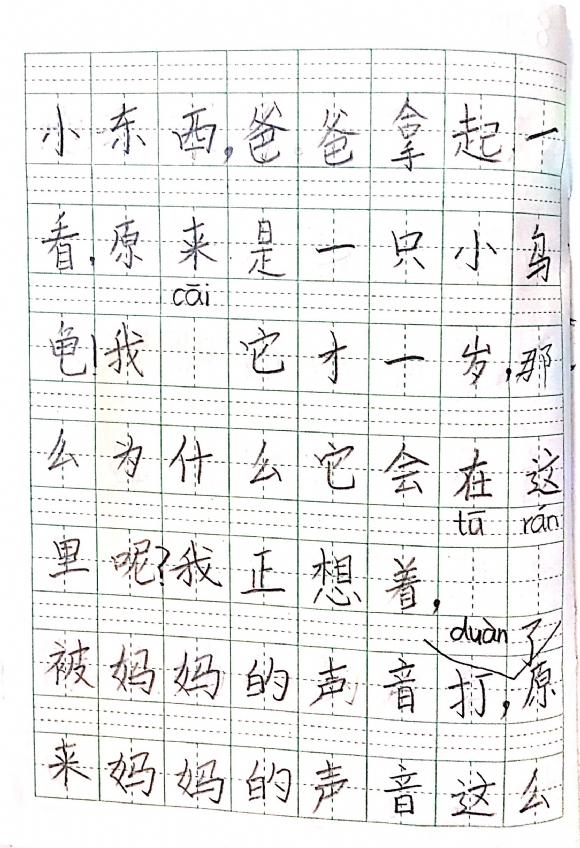 小东西,爸爸拿起一
看,原来是一只小乌
cāi
龟!我 它才一岁,那
么为什么它会在这
tū rán
里呢?我正想着,
duàn 了
被妈妈的声音打,原
来妈妈的声音这么